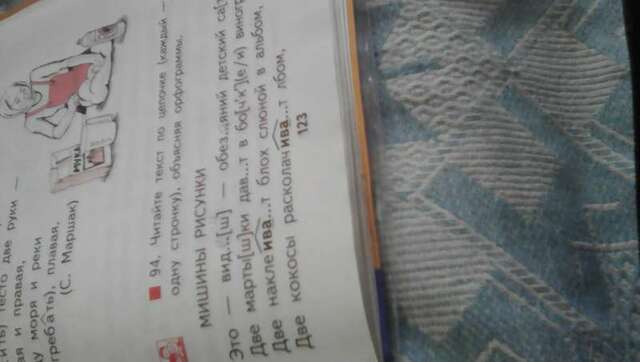 сто две руки —
и правая,
моря и реки
плавая.
(С. Маршак)
МУКА
94. Читайте текст по цепочке (каждый —
одну строчку), объясняя орфограммы.
МИШИНЫ РИСУНКИ
Это — вид...[ш] — обез...яний детский са[
Две марты[ш]ки дав...т в бо[ч'к'](е/и) виногр
Две наклеива...т блох слюной в альбом,
Две кокосы расколачива...т лбом,
123